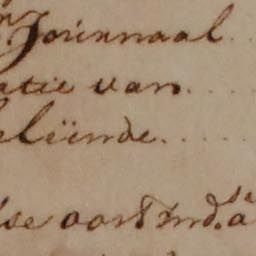 Journaal
atie van
elünde
se oost Ind.